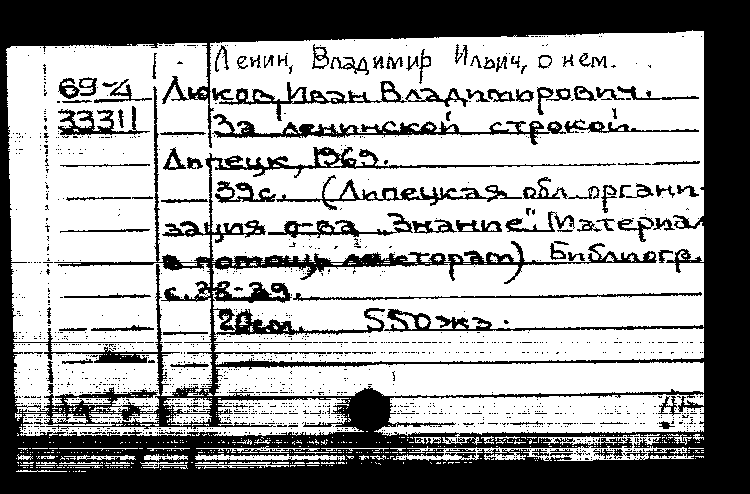 Ленин, Владимир Ильич, о нем.
69-4 Люков, Иван Владимирович.
33311 За ленинской строкой.
Липецк, 1969.
39с. (Липецкая обл. органи-
зация о-ва „Знание". Материал
в помощь лектору). Библиогр.
с. 38-39.
20см. 550экз.